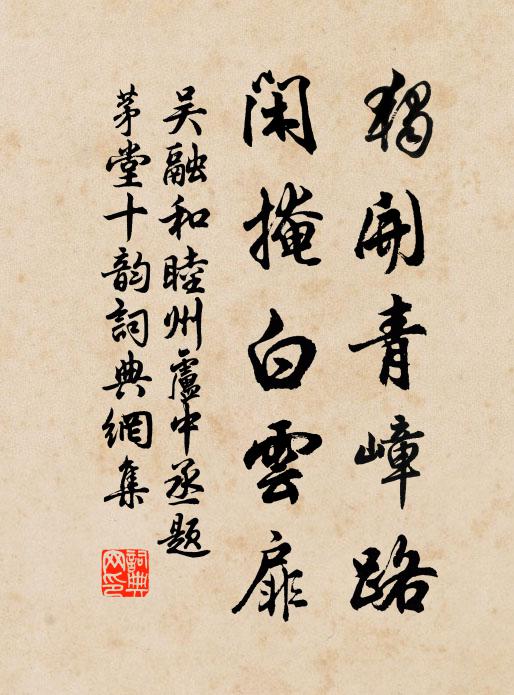 獨開青嶂路
閑掩白雲扉
吴融和睦州盧中丞题
茅堂十韵詞典網集
詞典
网印